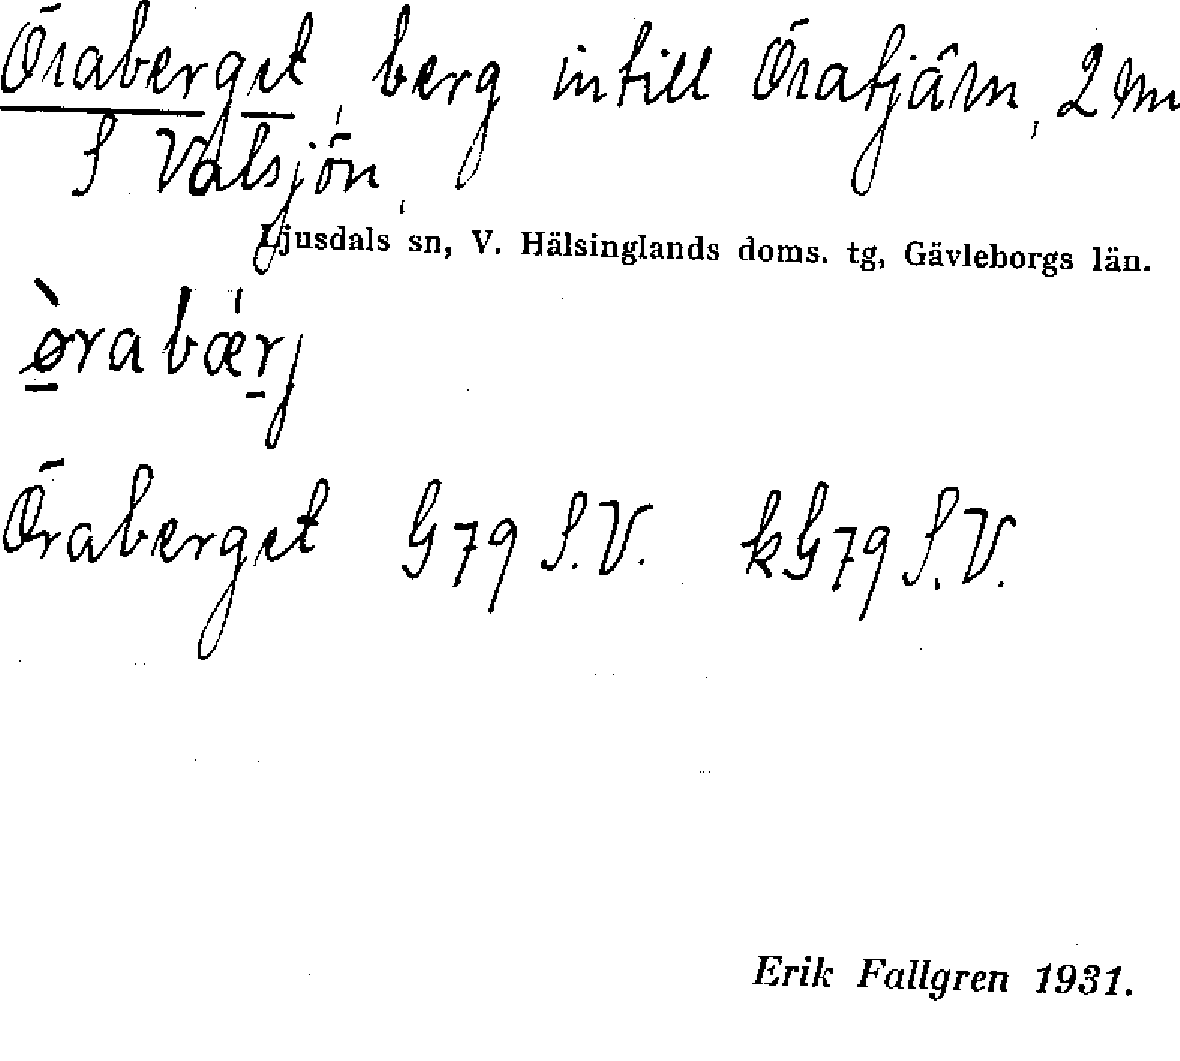 Öraberget, berg intill Öratjärn, 2 km
S Valsjön,
Ljusdals sn, V. Hälsinglands doms. tg, Gävleborgs län.
ø̀rabærj
Öraberget G79 S.V. kG79 S.V.
Erik Fallgren 1931.